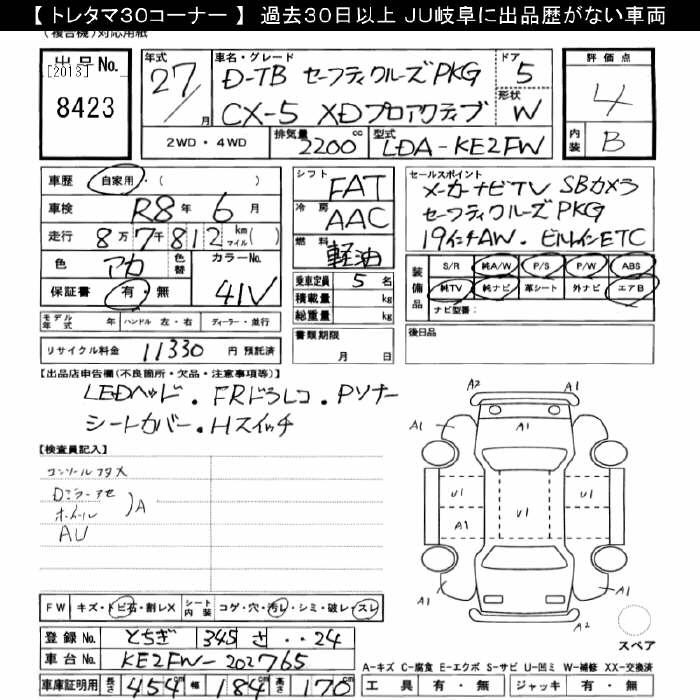 【トレタマ30コーナー】 過去30日以上 JU岐阜に出品歴がない車両
(複合機)対応用紙
出品No.
[2013]
8423
年式 27/ 月
車名・グレード
D-TB セーフティクルーズPKG
CX-5 XDプロアクティブ
ドア 5
形状 W
2WD・4WD
排気量 2200 cc
型式 LDA-KE2FW
評価点
4
内装 B
車歴 自家用・( )
車検 R8年 6月
走行 8万7千812 km マイル( )
色 アカ 色替 カラーNo. 41V
保証書 有・無
モデル年式 年 ハンドル 左・右 ディーラー・並行
リサイクル料金 11330 円 預託済
シフト FAT
冷房 AAC
燃料 軽油
乗車定員 5 名
積載量 kg
総重量 kg
書類期限
月 日
セールスポイント
メーカーナビTV SBカメラ
セーフティクルーズPKG
19インチAW. ビルトインETC
装備品
S/R 純A/W P/S P/W ABS
純TV 純ナビ 革シート 外ナビ エアB
ナビ型番:
後日品
【出品店申告欄(不良箇所・欠品・注意事項等)】
LEDヘッド. FRドラレコ. Pソナー
シートカバー. Hスイッチ
【検査員記入】
コンソールフタメ
Dミラーアセ
ホイール
)A
AU
A2 A1
A1 A1 A1
U1 U1 U1
A1
A1 A1
A2
スペア
FW キズ・トビ石・割レX シート内装 コゲ・穴・汚レ・シミ・破レ・スレ
登録No. とちぎ 345 さ ・・24
車台No. KE2FW-202765
車庫証明用 長さ 454 cm 幅 184 cm 高さ 170 cm
A-キズ C-腐食 E-エクボ S-サビ U-凹ミ W-補修 XX-交換済
工具 有・無 ジャッキ 有・無